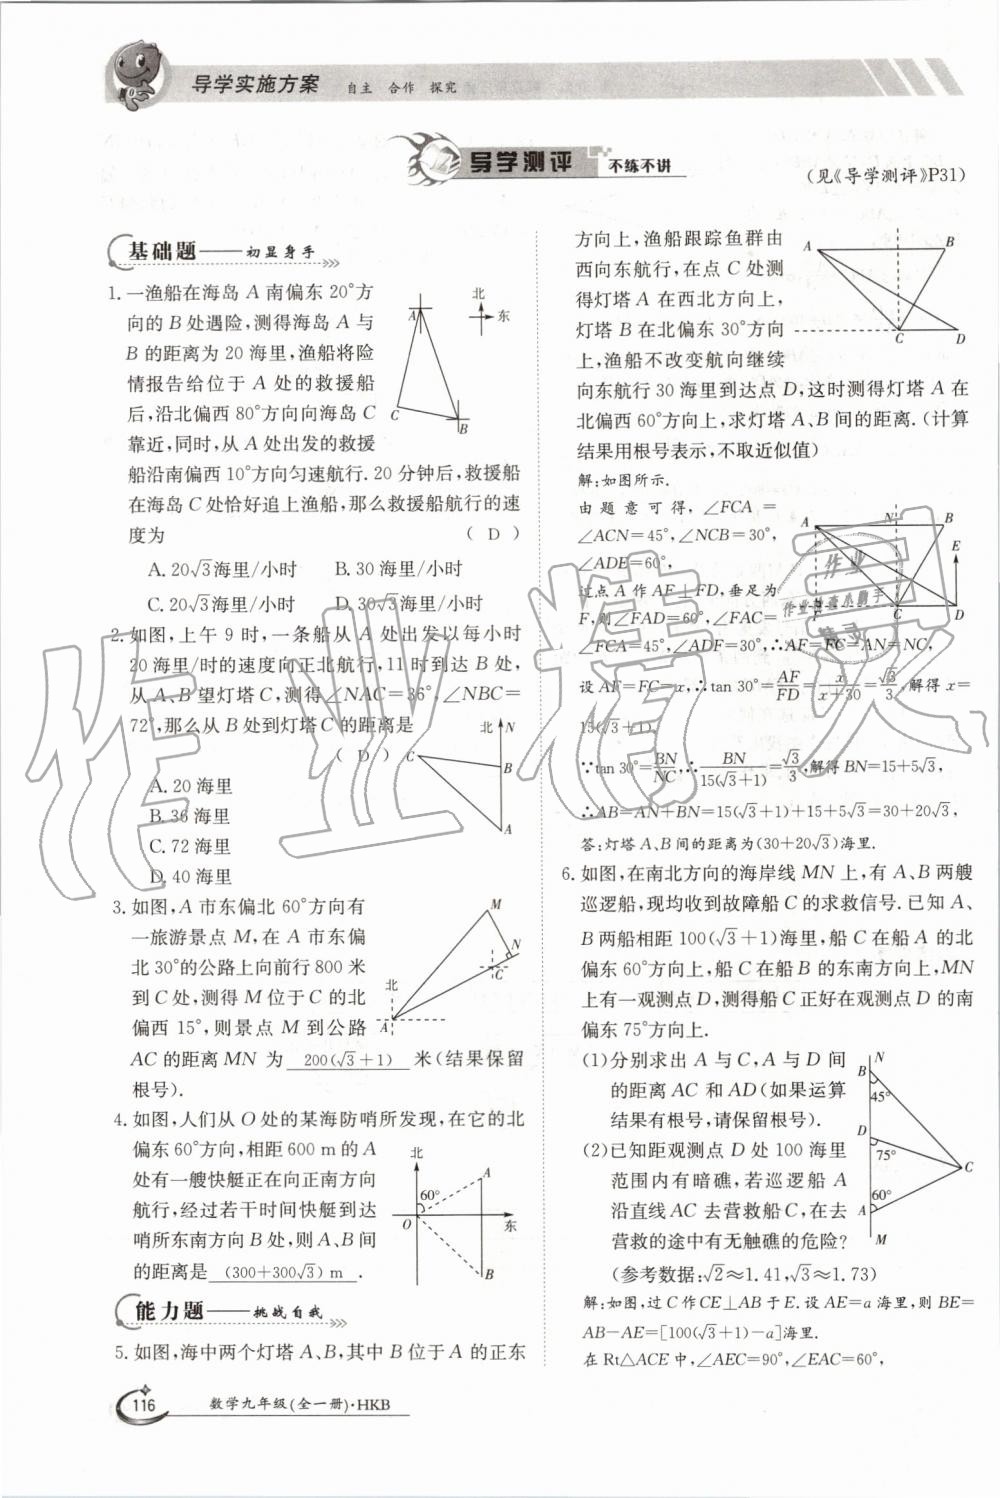 导学实施方案 自主 合作 探究
导学测评 不练不讲
(见《导学测评》P31)
基础题——初显身手
1.一渔船在海岛 A 南偏东 20°方
向的 B 处遇险,测得海岛 A 与
B 的距离为 20 海里,渔船将险
情报告给位于 A 处的救援船
后,沿北偏西 80°方向向海岛 C
靠近,同时,从 A 处出发的救援
船沿南偏西 10°方向匀速航行.20 分钟后,救援船
在海岛 C 处恰好追上渔船,那么救援船航行的速
度为 ( D )
A.20√3海里/小时 B.30 海里/小时
C.20√3海里/小时 D.30√3海里/小时
北
东
A
C
B
2.如图,上午 9 时,一条船从 A 处出发以每小时
20 海里/时的速度向正北航行,11 时到达 B 处,
从 A、B 望灯塔 C,测得∠NAC=36°,∠NBC=
72°,那么从 B 处到灯塔 C 的距离是
( D )
A.20 海里
B.36 海里
C.72 海里
D.40 海里
北 N
C
B
A
3.如图,A 市东偏北 60°方向有
一旅游景点 M,在 A 市东偏
北 30°的公路上向前行 800 米
到 C 处,测得 M 位于 C 的北
偏西 15°,则景点 M 到公路
AC 的距离 MN 为 200(√3+1) 米(结果保留
根号).
M
N
C
北
A
4.如图,人们从 O 处的某海防哨所发现,在它的北
偏东 60°方向,相距 600 m 的 A
处有一艘快艇正在向正南方向
航行,经过若干时间快艇到达
哨所东南方向 B 处,则 A、B 间
的距离是 (300+300√3) m .
北
A
60°
O
东
B
能力题——挑战自我
5.如图,海中两个灯塔 A、B,其中 B 位于 A 的正东
方向上,渔船跟踪鱼群由
西向东航行,在点 C 处测
得灯塔 A 在西北方向上,
灯塔 B 在北偏东 30°方向
上,渔船不改变航向继续
向东航行 30 海里到达点 D,这时测得灯塔 A 在
北偏西 60°方向上,求灯塔 A、B 间的距离.(计算
结果用根号表示,不取近似值)
A
B
C
D
解:如图所示.
由题意可得,∠FCA=
∠ACN=45°,∠NCB=30°,
∠ADE=60°,
过点 A 作 AF⊥FD,垂足为
F,则∠FAD=60°,∠FAC=
∠FCA=45°,∠ADF=30°,∴AF=FC=AN=NC,
设 AF=FC=x,∴tan 30°=AF/FD=x/(x+30)=√3/3,解得 x=
15(√3+1).
∵tan 30°=BN/NC,∴BN/15(√3+1)=√3/3,解得 BN=15+5√3,
∴AB=AN+BN=15(√3+1)+15+5√3=30+20√3,
答:灯塔 A、B 间的距离为(30+20√3)海里.
A
N
B
E
F
C
D
6.如图,在南北方向的海岸线 MN 上,有 A、B 两艘
巡逻船,现均收到故障船 C 的求救信号.已知 A、
B 两船相距 100(√3+1)海里,船 C 在船 A 的北
偏东 60°方向上,船 C 在船 B 的东南方向上,MN
上有一观测点 D,测得船 C 正好在观测点 D 的南
偏东 75°方向上.
(1)分别求出 A 与 C,A 与 D 间
的距离 AC 和 AD(如果运算
结果有根号,请保留根号).
(2)已知距观测点 D 处 100 海里
范围内有暗礁,若巡逻船 A
沿直线 AC 去营救船 C,在去
营救的途中有无触礁的危险?
(参考数据:√2≈1.41,√3≈1.73)
N
B
45°
D
75°
C
60°
A
M
解:如图,过 C 作 CE⊥AB 于 E.设 AE=a 海里,则 BE=
AB-AE=[100(√3+1)-a]海里.
在 Rt△ACE 中,∠AEC=90°,∠EAC=60°,
116 数学九年级(全一册)·HKB
作业精灵